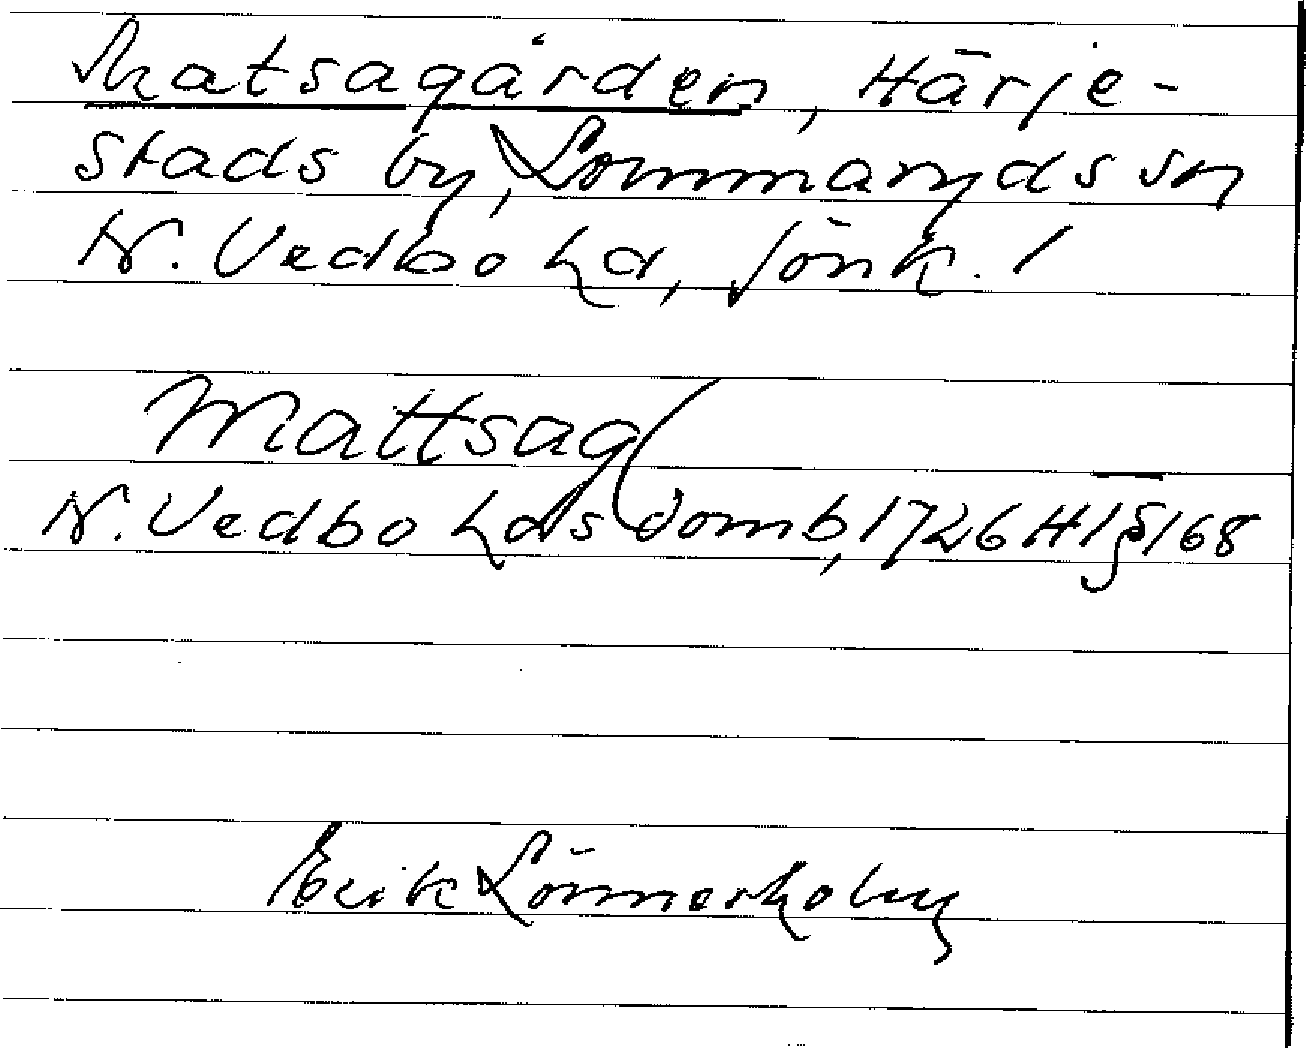 Matsagården, Härje-
stads by, Lommaryds sn
N. Vedbo hd, Jönk. l
Mattsag(
N. Vedbo hds domb, 1726 H1 § 168
Erik Lönnerholm